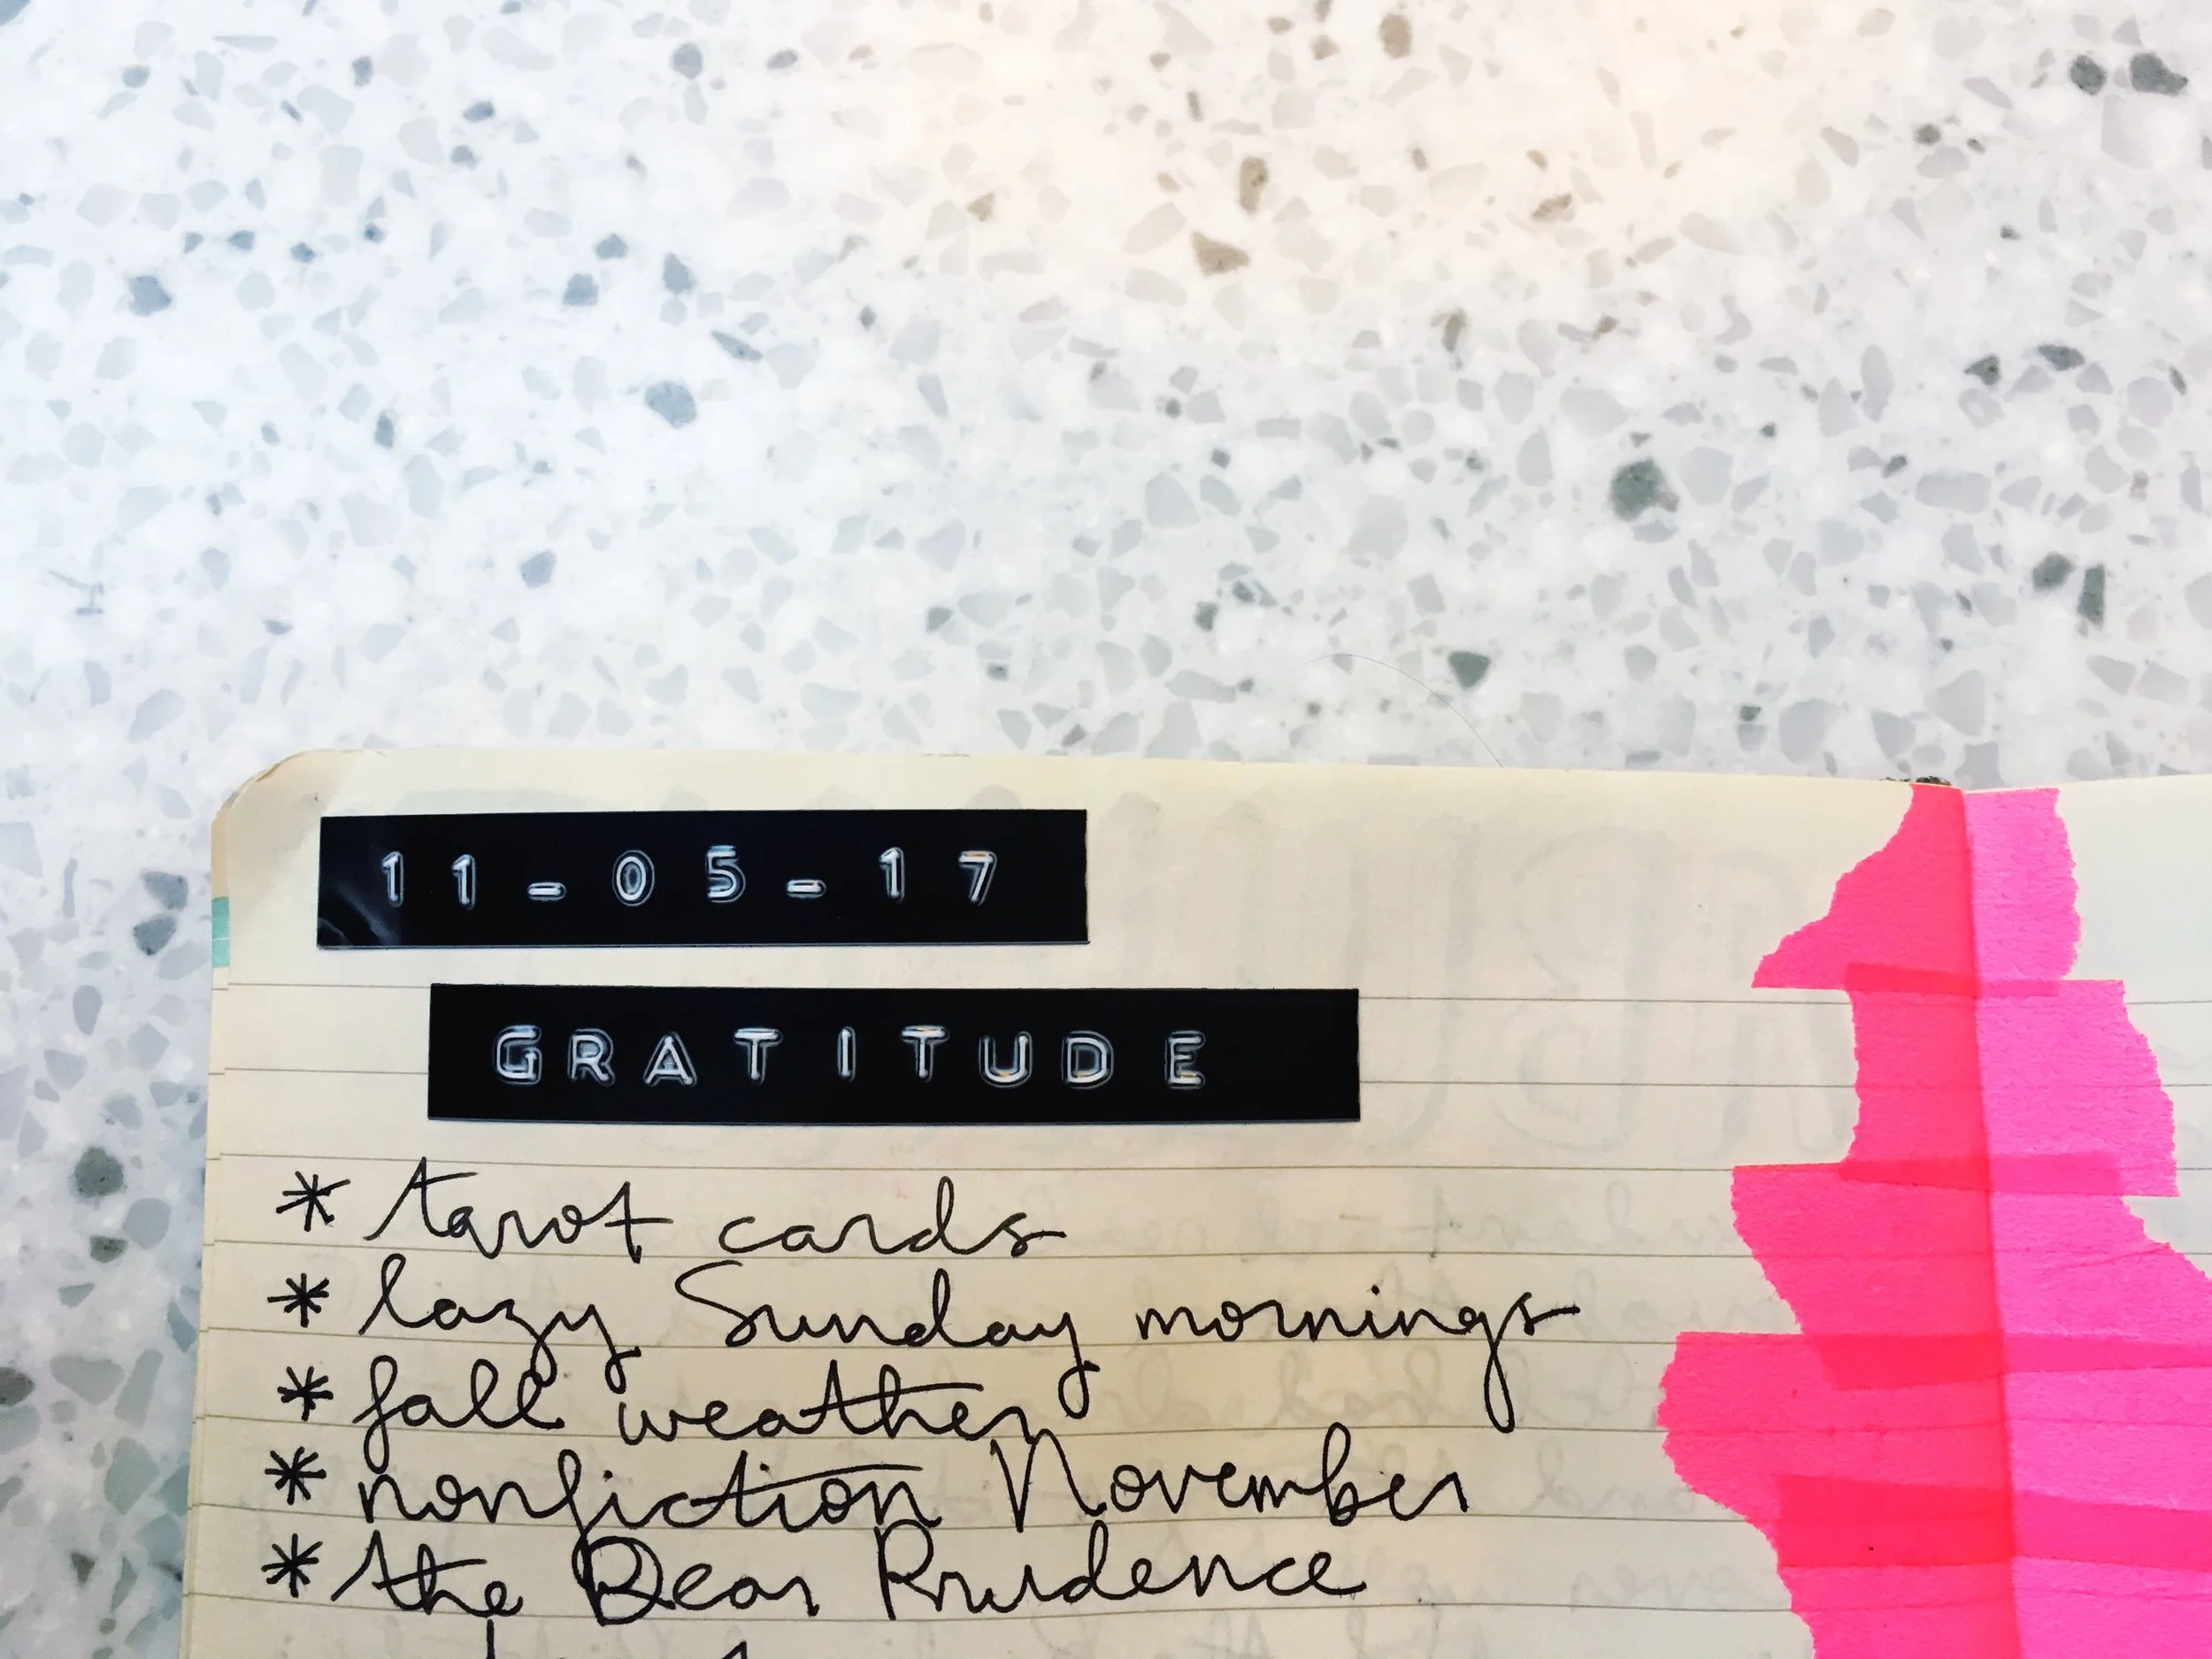 11-05-17
GRATITUDE
* tarot cards
* lazy Sunday mornings
* fall weather
* nonfiction November
* the Dear Prudence